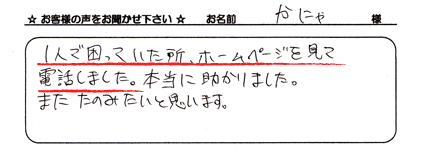 ☆ お客様の声をお聞かせ下さい ☆ お名前 かにゃ 様
1人で困っていた所、ホームページを見て
電話しました。本当に助かりました。
また たのみたいと思います。